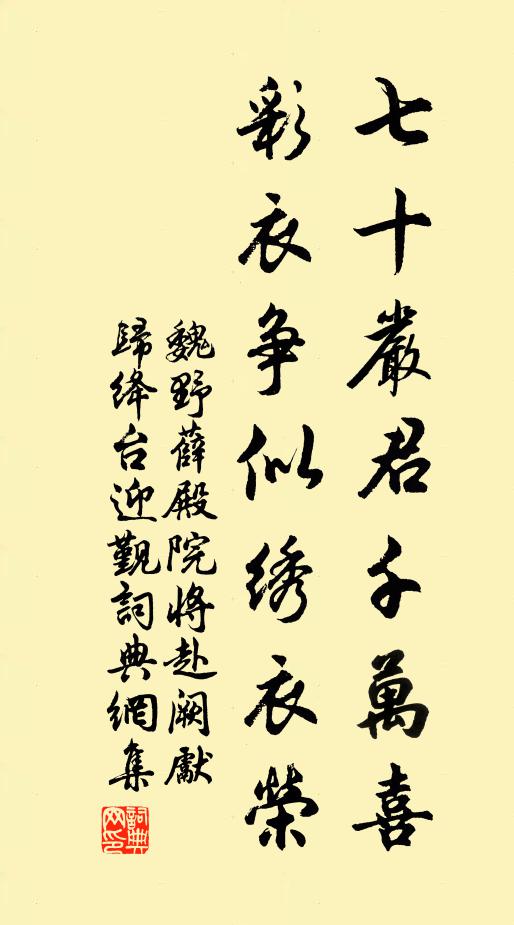 七十嚴君千萬喜
彩衣争似綉衣榮
魏野薛殿院將赴闕獻
歸絳台迎覲詞典網集
詞典网印